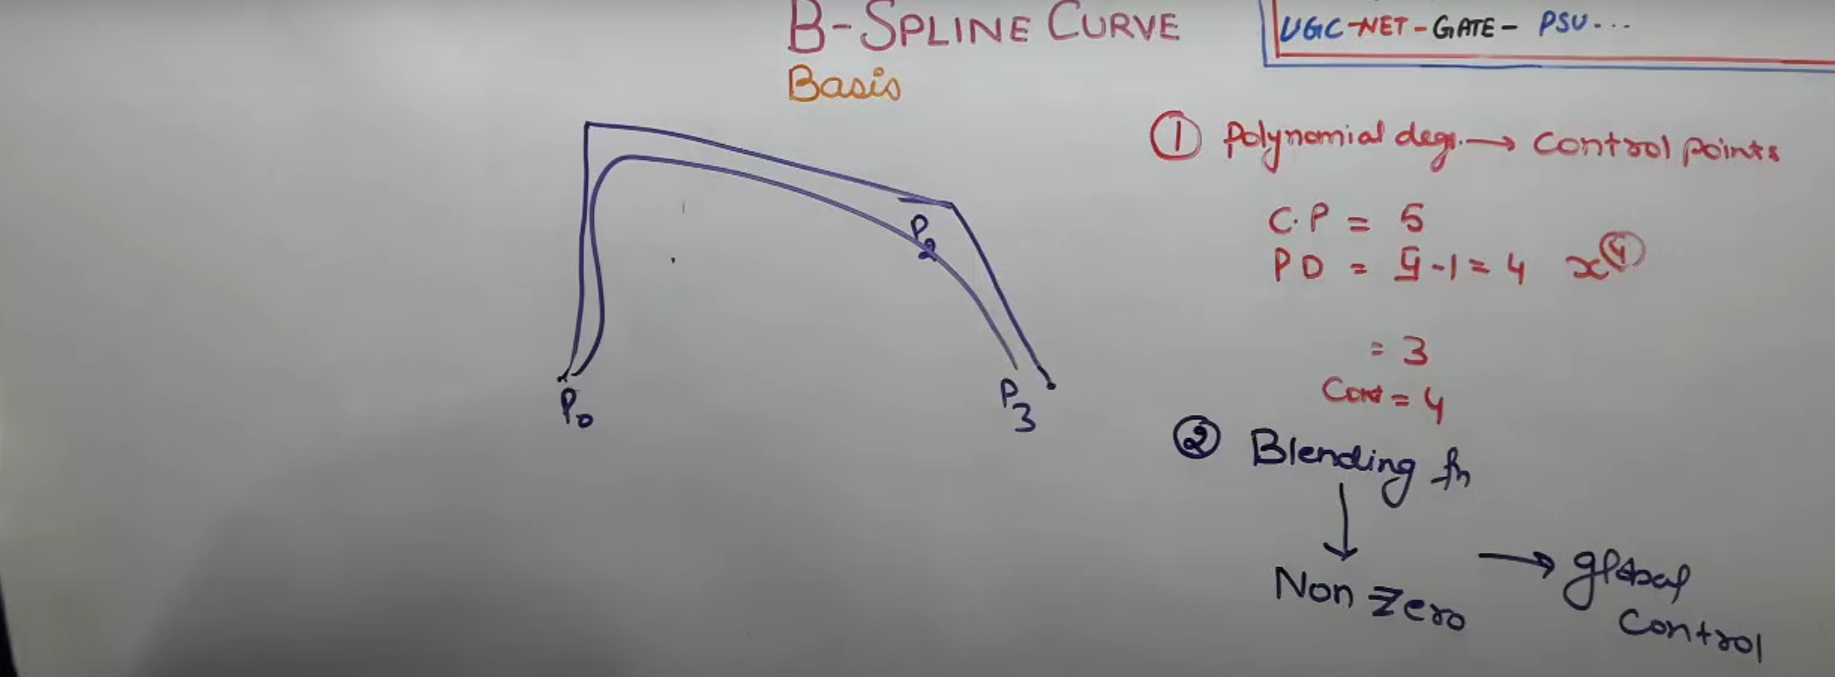 B-SPLINE CURVE
Basis
UGC-NET-GATE- PSU...
① Polynomial deg. → Control points
C.P = 5
PD = 5-1 = 4 x④
= 3
Cont = 4
② Blending fn
↓
Non Zero → global
control
P2
P0
P3